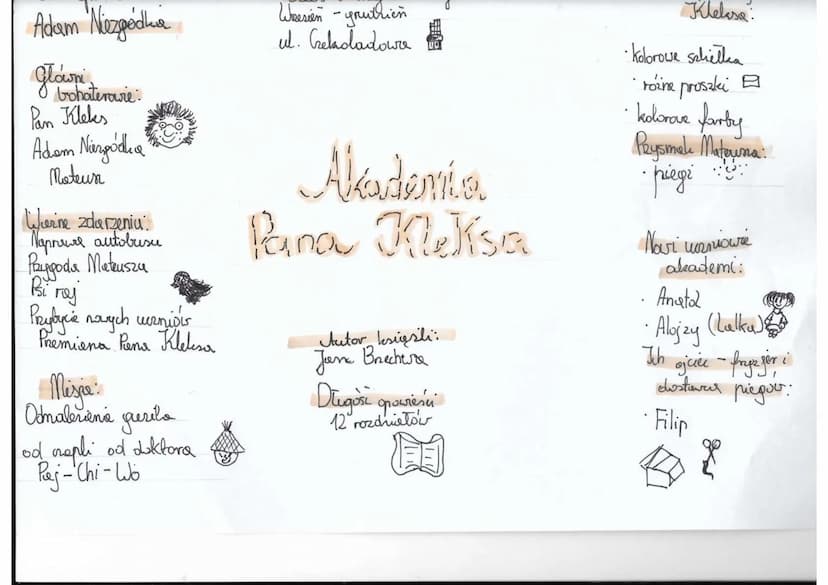 Adam Niezgódka
Główni
bohaterowie:
Pan Kleks
Adam Niezgódka
Mateusz
Ważne zdarzenia:
Naprawa autobusu
Przygoda Mateusza
Psi raj
Przybycie nowych uczniów
Przemiana Pana Kleksa
Misja:
Odnalezienie guzika
od czapki od doktora
Paj-Chi-Wo
Wrzesień - grudzień
ul. Czekoladowa
Akademia
Pana Kleksa
Autor książki:
Jana Brzechwa
Długość opowieści
12 rozdziałów
Kleksa:
· kolorowe szkiełka
· różne proszki
· kolorowe farby
Przysmak Mateusza:
· piegi
Nowi uczniowie
akademi:
· Anatol
· Alojzy (Lalka)
Ich ojciec - fryzjer i
dostawca piegów:
· Filip